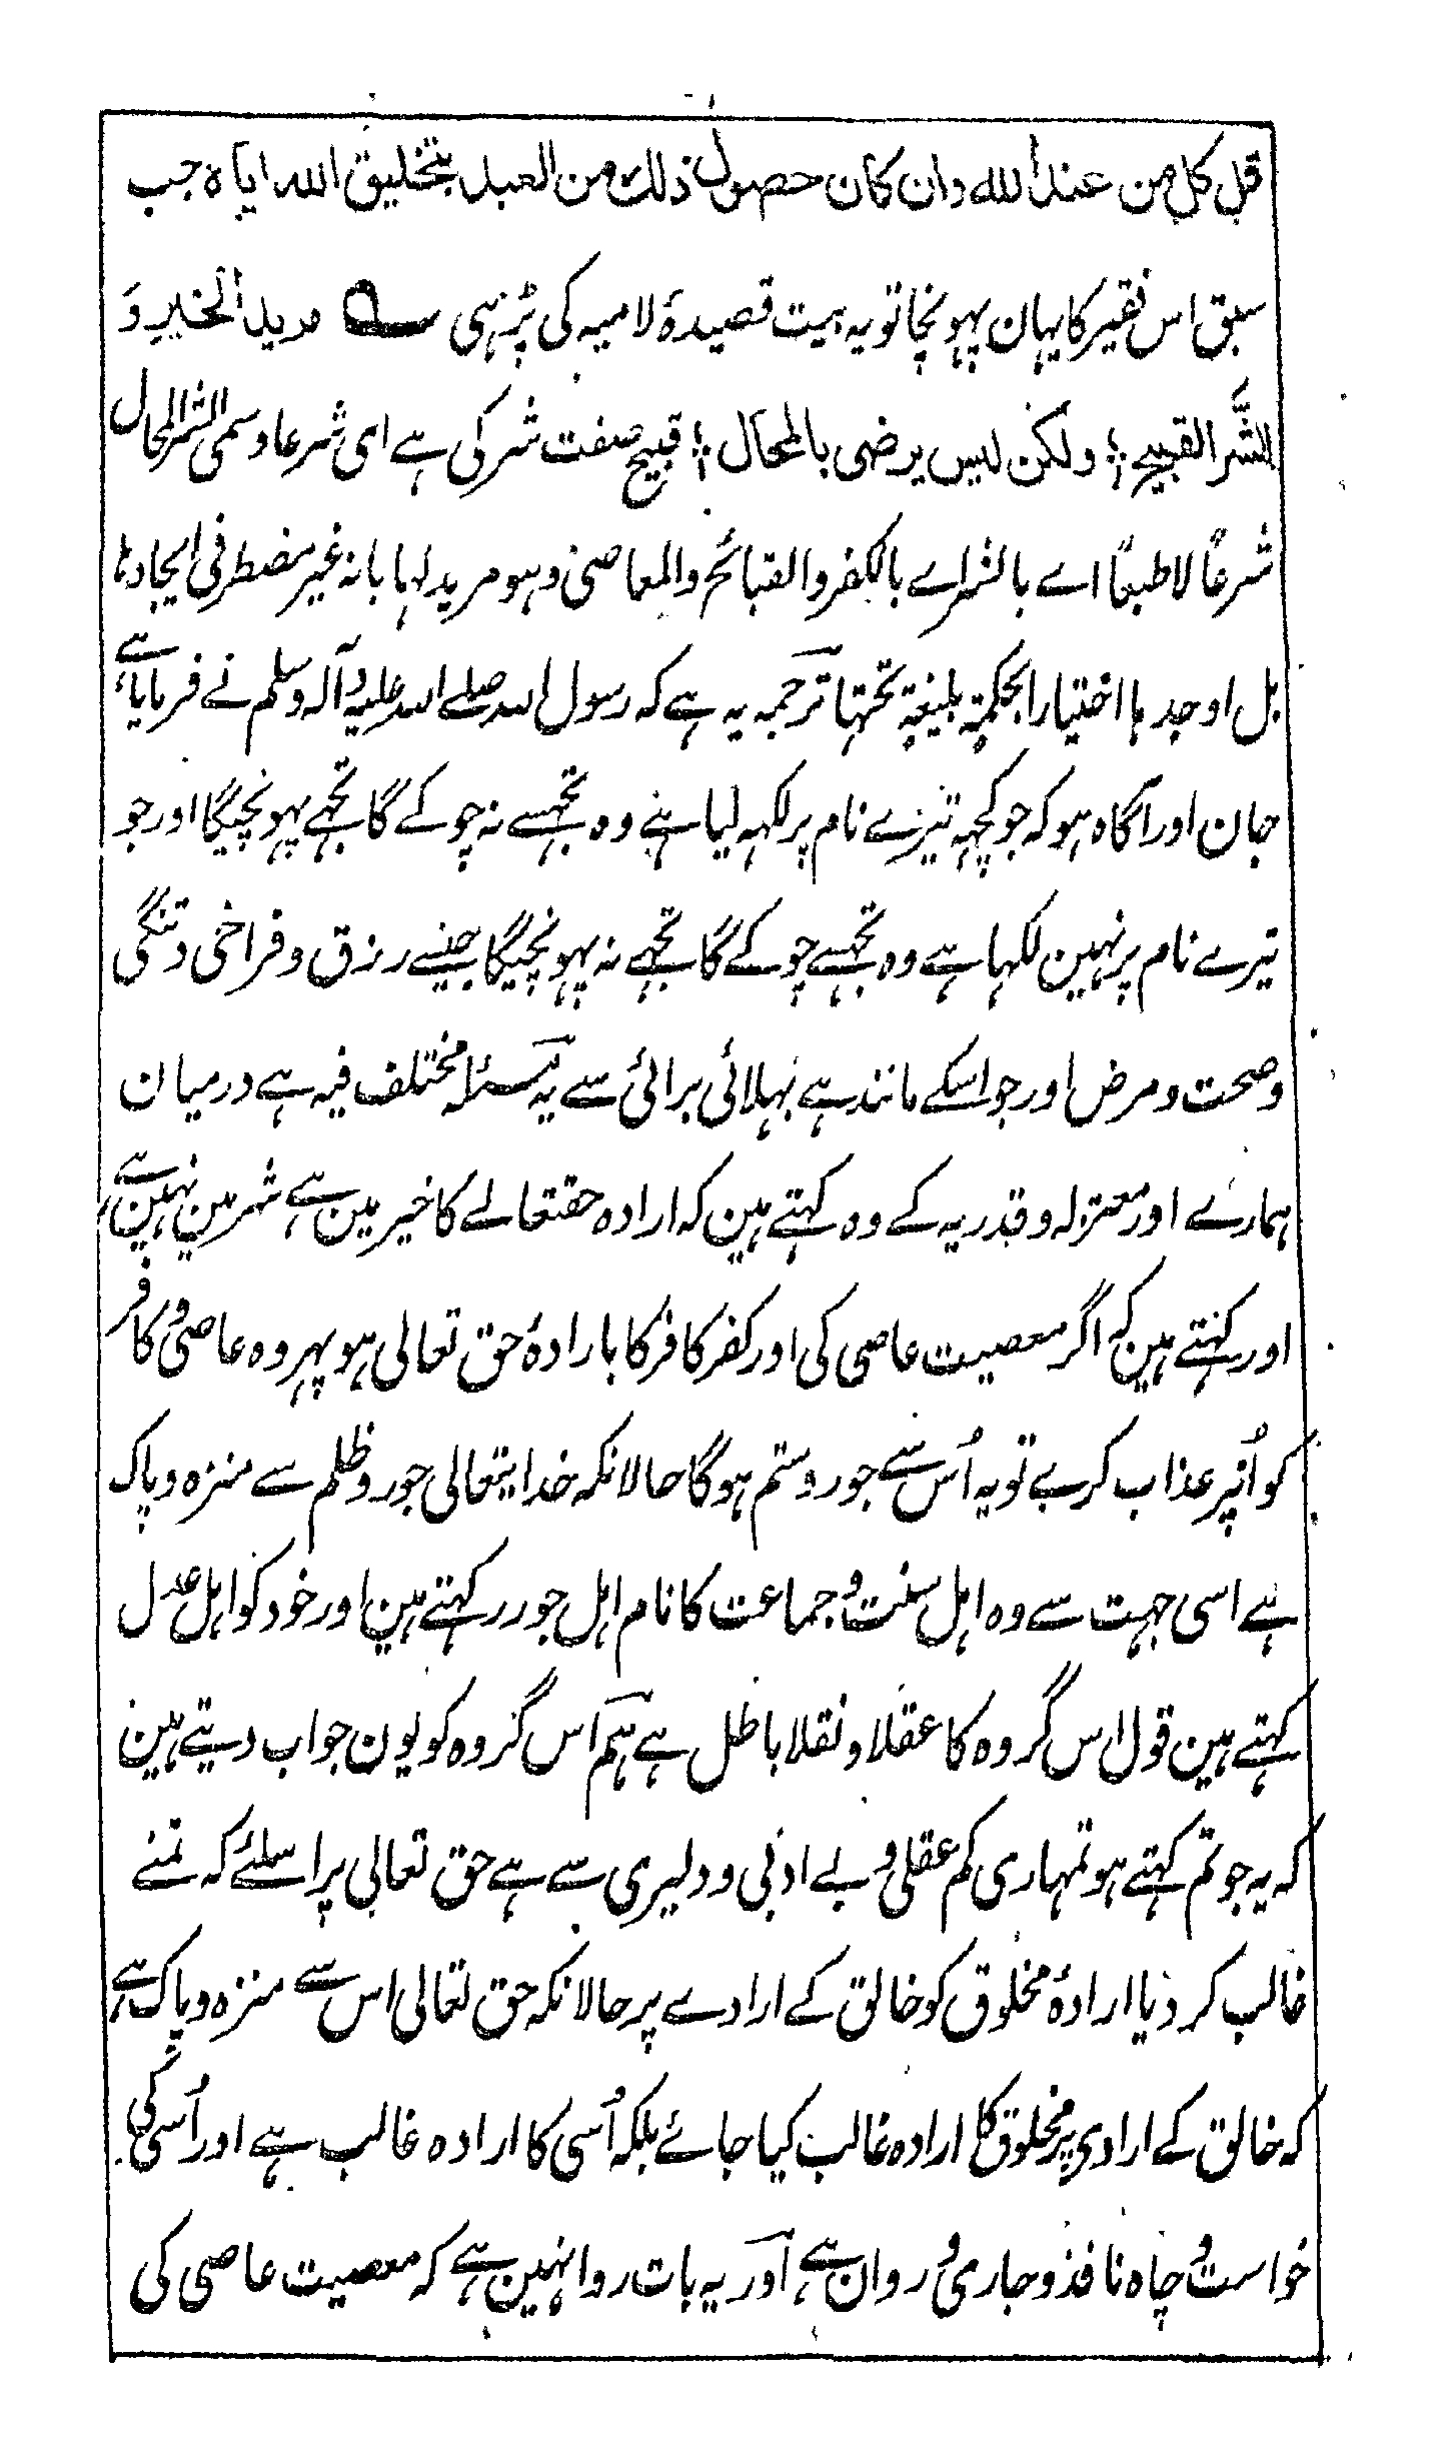 قل کل من عند الله وان کان حصول ذلك من العبد بتخليق الله اياه جب
سبق اس فقیر کا یہان پہونچا تو یہ بیت قصیدۂ لامیہ کی پڑہی ؎ مريد الخيرِ وَ
الشَّر القبيح ؛ ولكن ليس يرضى بالمحال ؛ قبیح صفت شر کی ہے ای شرعا وسمی الشر المحال
شرعًا لا طبعًا اے بالشر اے بالکفر والقبائح والمعاصی وہو مرید لہا بانہ غیر مضطر فی ایجادہا
بل اوجدہا اختیارا لحکمۃ بلیغۃ تحتہا ترجمہ یہ ہے کہ رسول اللہ صلے اللہ علیہ وآلہ وسلم نے فرمایا ہے
جان اور آگاہ ہو کہ جو کچہہ تیرے نام پر لکہہ لیا ہے وہ تجہسے نہ چوکے گا تجہے پہونچیگا اور جو
تیرے نام پر نہین لکہا ہے وہ تجہسے چوکے گا تجہے نہ پہونچیگا جیسے رزق و فراخی و تنگی
و صحت و مرض اور جو اسکے مانند ہے بہلائی برائی سے یہ مسئلہ مختلف فیہ ہے درمیان
ہمارے اور معتزلہ و قدریہ کے وہ کہتے ہین کہ ارادہ حقتعالے کا خیر مین ہے شر مین نہین ہے
اور کہتے ہین کہ اگر معصیت عاصی کی اور کفر کافر کا بارادۂ حق تعالی ہو پہر وہ عاصی و کافر
کو اُنپر عذاب کرے تو یہ اُس سے جور و ستم ہو گا حالانکہ خدایتعالی جور و ظلم سے منزہ و پاک
ہے اسی جہت سے وہ اہل سنت و جماعت کا نام اہل جور رکہتے ہین اور خود کو اہل عدل
کہتے ہین قول اس گروہ کا عقلا و نقلا باطل ہے ہم اس گروہ کو یون جواب دیتے ہین
کہ یہ جو تم کہتے ہو تمہاری کم عقلی و بے ادبی و دلیری سے ہے حق تعالی پر اسلئے کہ تمنے
غالب کر دیا ارادۂ مخلوق کو خالق کے ارادے پر حالانکہ حق تعالی اس سے منزہ و پاک ہے
کہ خالق کے ارادی پر مخلوق کا ارادہ غالب کیا جائے بلکہ اُسی کا ارادہ غالب ہے اور اُسی کی
خواست و چاہ نافذ و جاری و روان ہے اور یہ بات روا نہین ہے کہ معصیت عاصی کی